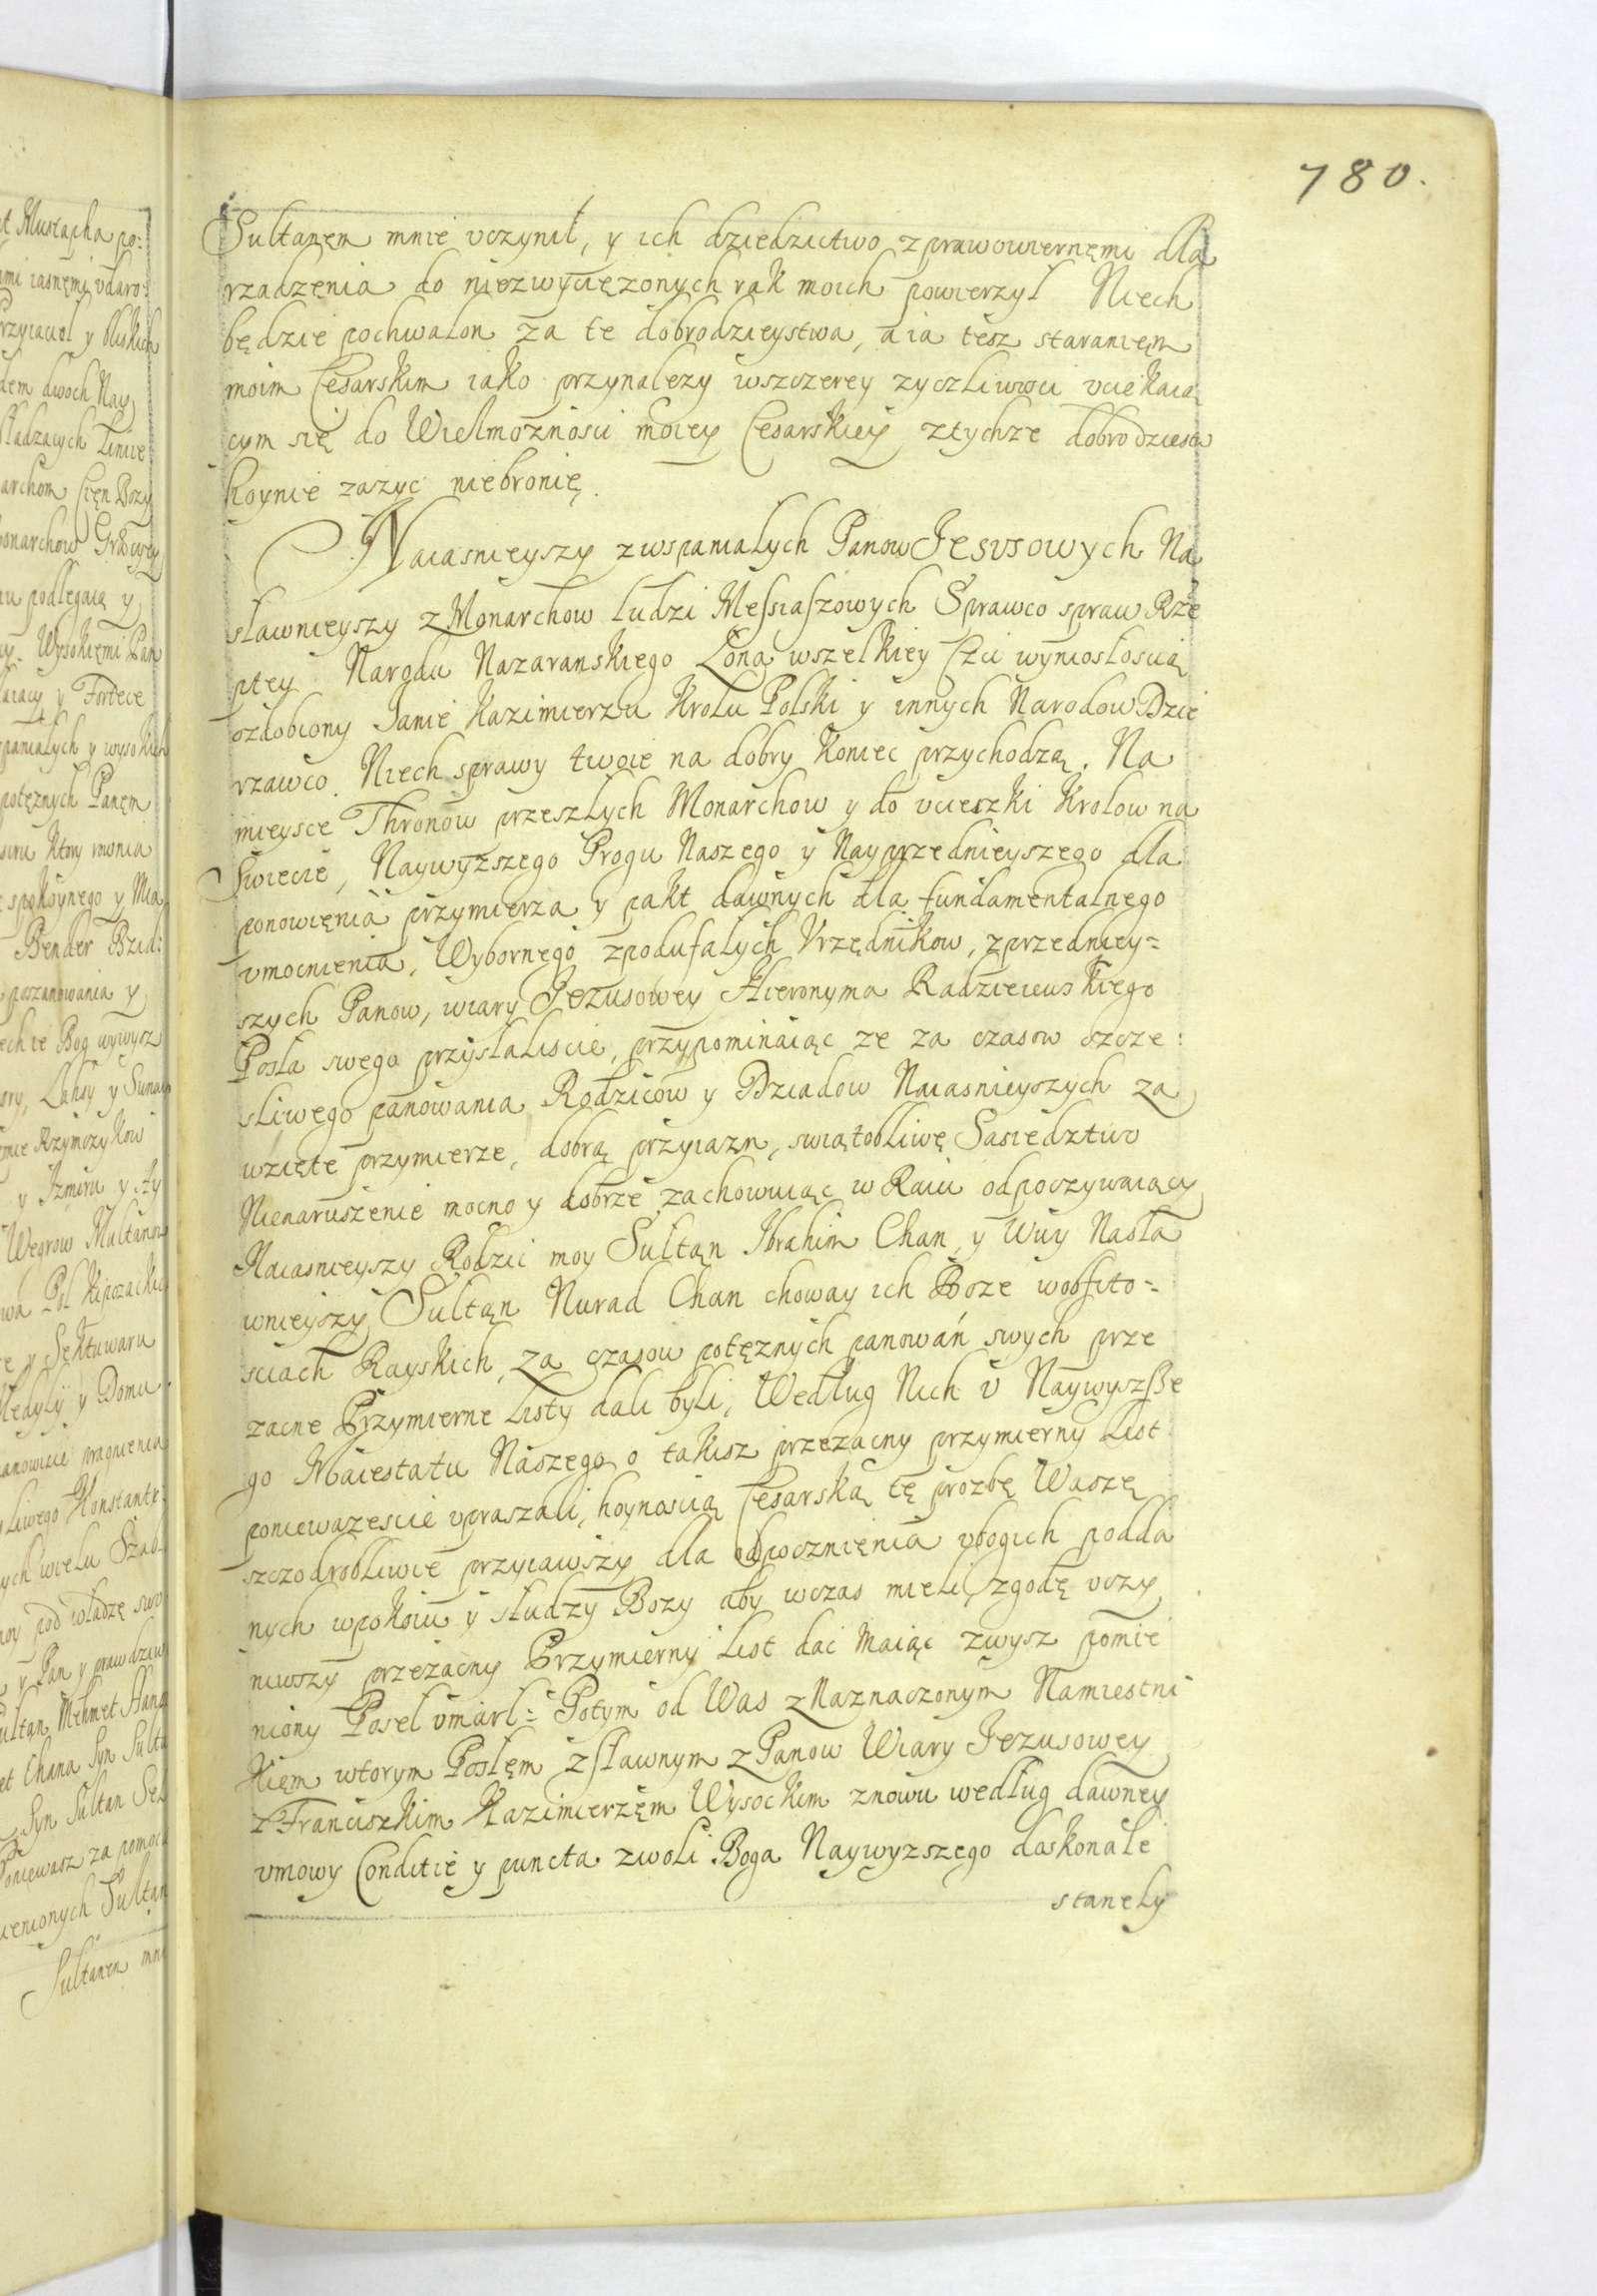 780.
Sultanem mnie vczynił, y ich dziedzictwo z prawowiernęmi dla
rzadzenia do niezwycięzonych rak moich powierzył Niech
będzie pochwalon za te dobrodzieystwa, a ia tesz staranięm
moim Cesarskim iako przynalezy wszczerey zyczliwosci vciekaią
cym się do Wielmoznosci moiey Cesarskiey ztychze dobrodzieistw
hoynie zazyc niebronię.
Naiasnieyszy zwspaniałych Panow Jesvsowych Na
sławnieyszy z Monarchow ludzi Messiaszowych Sprawco spraw Rze
ptey Narodu Nazaranskiego Łona wszelkiey Czci wyniosłoscią
ozdobiony Janie Kazimierzu Krolu Polski y innych Narodow Dzie
rzawco. Niech sprawy twoie na dobry koniec przychodzą. Na
mieysce Thronow przeszłych Monarchow y do vcieszki Krolow na
Swiecie, Naywyzszego Progu Naszego y Nayprzednieyszego dla
ponowięnia przymierza y pakt dawnych dla fundamentalnego
vmocnienia, Wybornego zpodufałych Vrzędnikow, zprzedniey=
szych Panow, wiary Jezusowey Hieronyma Radzieiewskiego
Posła swego przysłaliscie, przypominaiąc ze za czasow szcze:
sliwego panowania Rodzicow y Dziadow Naiasnieyszych za
wzięte przymierze, dobrą przyiazn, swiątobliwę Sasiedztwo
Nienaruszenie mocno y dobrze zachowuiąc w Raiu odpoczywaiący
Naiasnieyszy Rodzic moy Sułtąn Ibrahim Chan, y Wuy Nasła
wnieyszy Sułtąn Nurad Chan choway ich Boze wobfito=
sciach Rayskich, za czasow potęznych panowań swych prze
zacne Przymierne Listy dali byli, Według Nich v Naywyzsze
go Maiestatu Naszego o takisz przezacny przymierny List
poniewazescie vpraszali, hoynoscią Cesarską tę prozbę Waszę
szczodrobliwie przyiawszy dla odpocznięnia vbogich podda
nych wpokoiu y słudzy Bozy aby wczas mieli, zgodę vczy
niwszy przezacny Przymierny List dac maiąc zwysz pomie
niony Poseł vmarł: Potym od Was zNaznaczonym Namiestni
kięm wtorym Posłęm zsławnym z Panow Wiary Jezusowey
z Franciszkim Kazimierzęm Wysockim znowu według dawney
vmowy Conditie y puncta zwoli Boga Naywyzszego doskonale
staneły